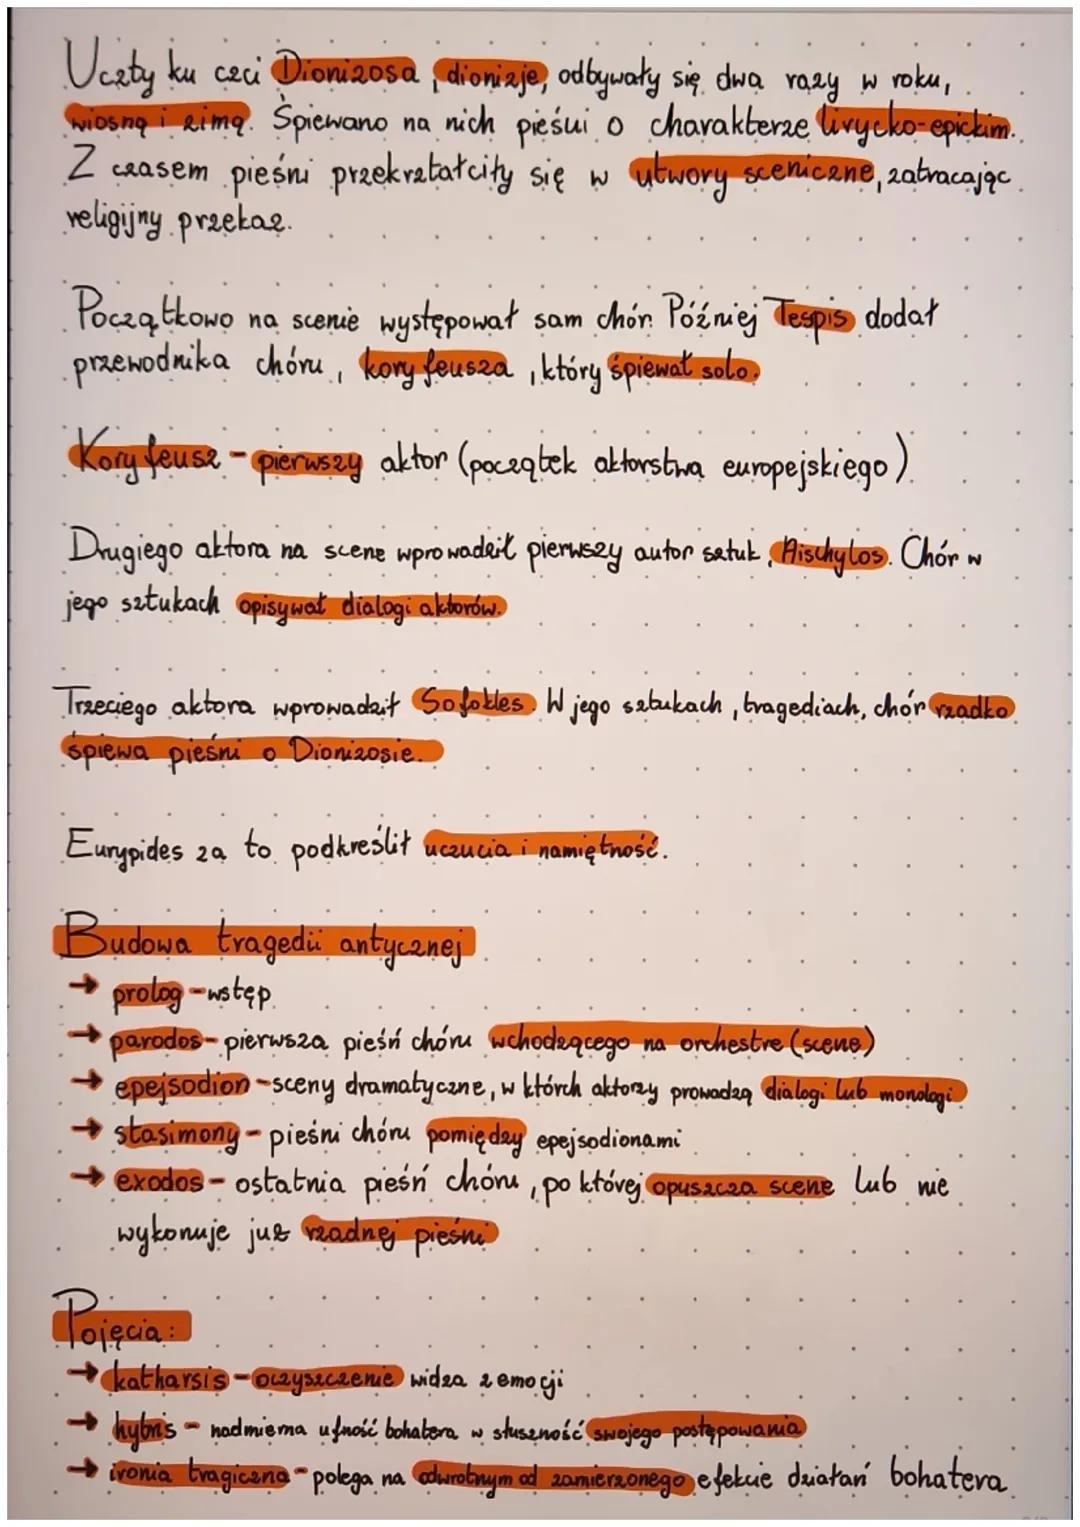 Uczty ku czci Dionizosa, dionizje, odbywały się dwa razy w roku,
wiosną i zimą. Śpiewano na nich pieśni o charakterze lirycko-epickim.
Z czasem pieśni przekształciły się w utwory sceniczne, zatracając
religijny przekaz.
Początkowo na scenie występował sam chór. Później Tespis dodał
przewodnika chóru, koryfeusza, który śpiewał solo.
Koryfeusz - pierwszy aktor (początek aktorstwa europejskiego).
Drugiego aktora na scene wprowadził pierwszy autor sztuk, Aischylos. Chór w
jego sztukach opisywał dialogi aktorów.
Trzeciego aktora wprowadził Sofokles. W jego sztukach, tragediach, chór rzadko
śpiewa pieśni o Dionizosie.
Eurypides za to podkreślił uczucia i namiętność.
Budowa tragedii antycznej
→ prolog - wstęp
→ parodos - pierwsza pieśń chóru wchodzącego na orchestre (scene)
→ epejsodion - sceny dramatyczne, w którch aktorzy prowadzą dialogi lub monologi
→ stasimony - pieśni chóru pomiędzy epejsodionami
→ exodos - ostatnia pieśń chóru, po której opuszcza scene lub nie
wykonuje już rzadnej pieśni
Pojęcia:
→ katharsis - oczyszczenie widza z emocji
→ hybris - nadmierna ufność bohatera w słuszność swojego postępowania
→ ironia tragiczna - polega na odwrotnym od zamierzonego efekcie działań bohatera